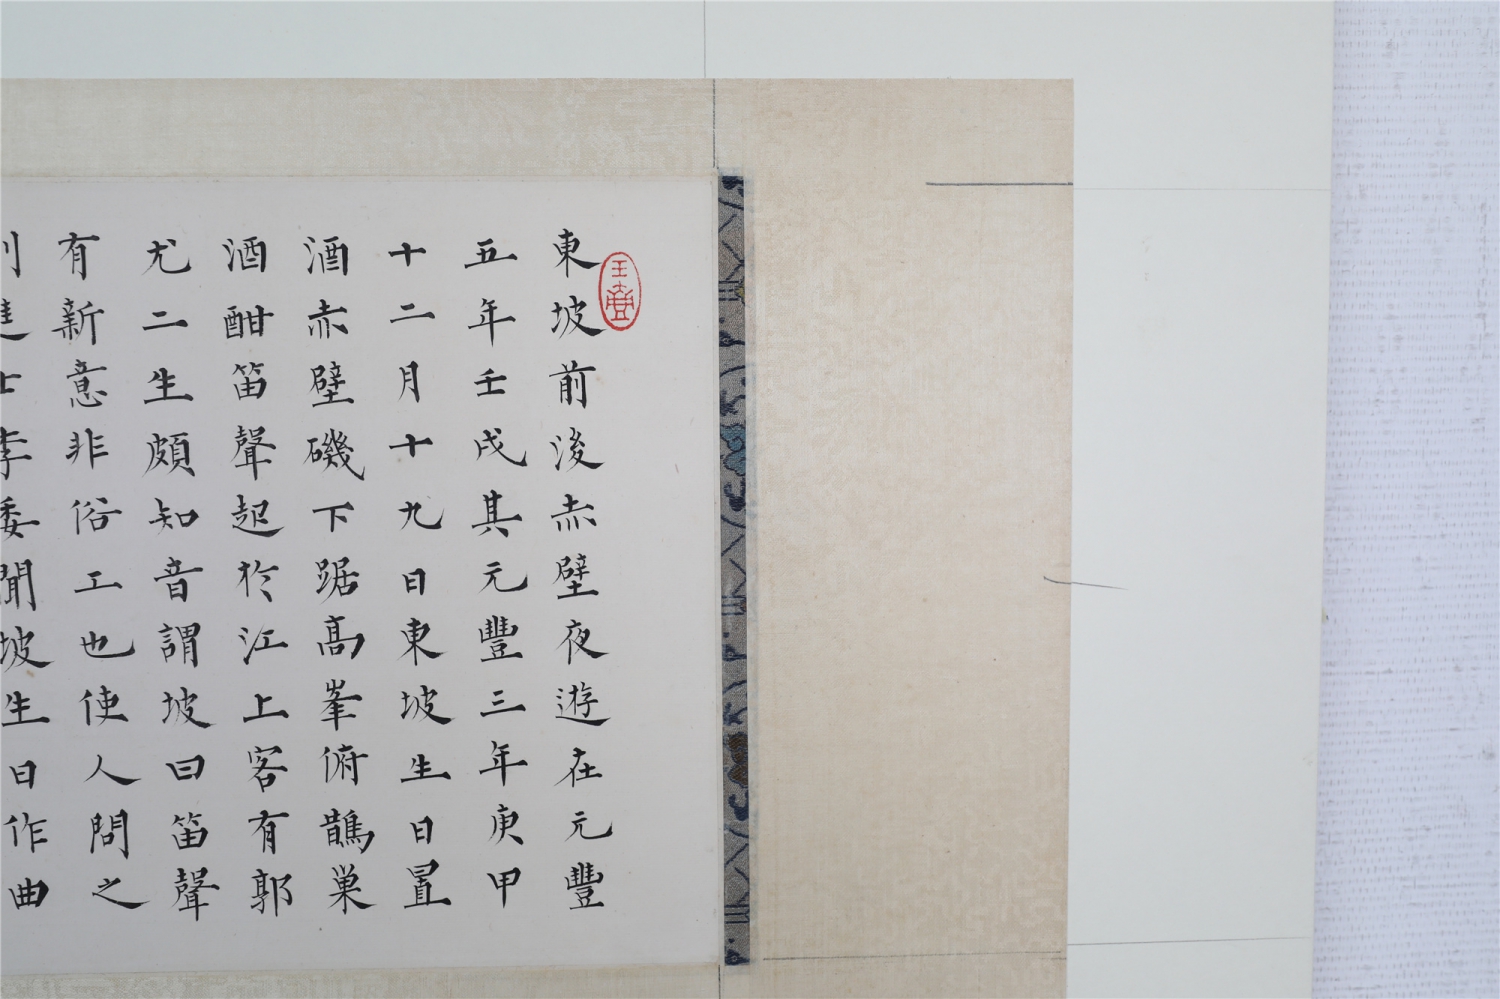 東坡前後赤壁夜遊在元豐
五年壬戌其元豐三年庚甲
十二月十九日東坡生日置
酒赤壁磯下踞高峯俯鵲巢
酒酣笛聲起於江上客有郭
尤二生頗知音謂坡曰笛聲
有新意非俗工也使人問之
進士李委聞坡生日作曲